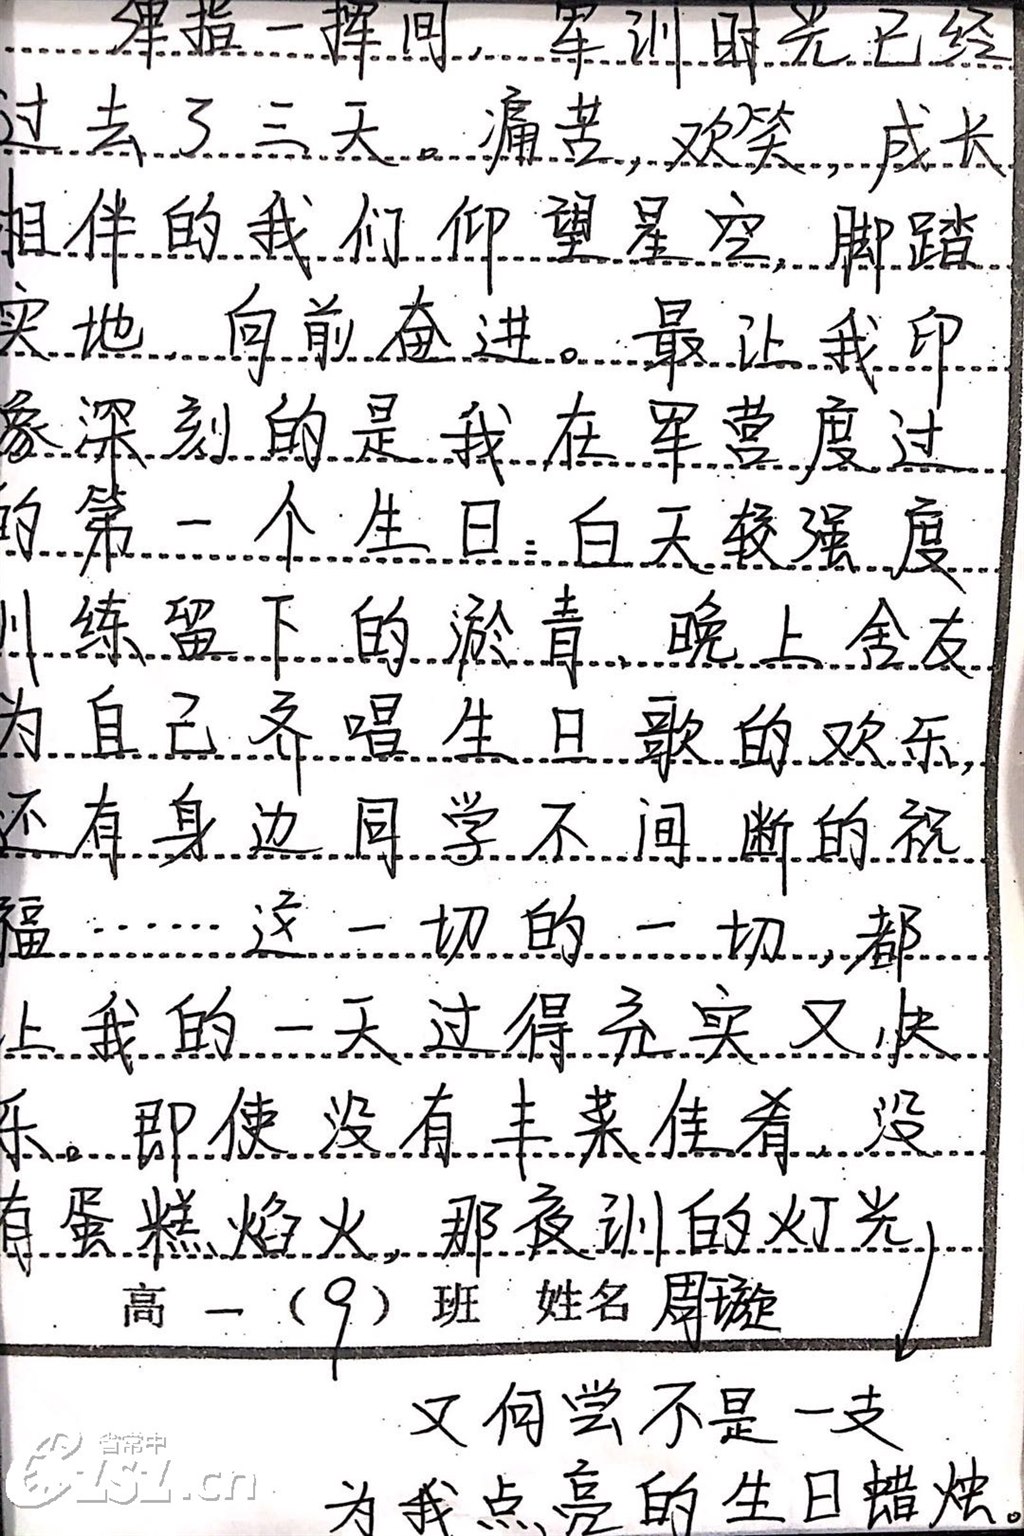 弹指一挥间，军训时光已经
过去了三天。痛苦，欢笑，成长
相伴的我们仰望星空，脚踏
实地，向前奋进。最让我印
象深刻的是我在军营度过
的第一个生日：白天较强度
训练留下的淤青，晚上舍友
为自己齐唱生日歌的欢乐，
还有身边同学不间断的祝
福……这一切的一切，都
让我的一天过得充实又快
乐。即使没有丰菜佳肴，没
有蛋糕焰火，那夜训的灯光，
高一（9）班 姓名 周璇
又何尝不是一支
为我点亮的生日蜡烛。
省常中
CZSLZ.cn